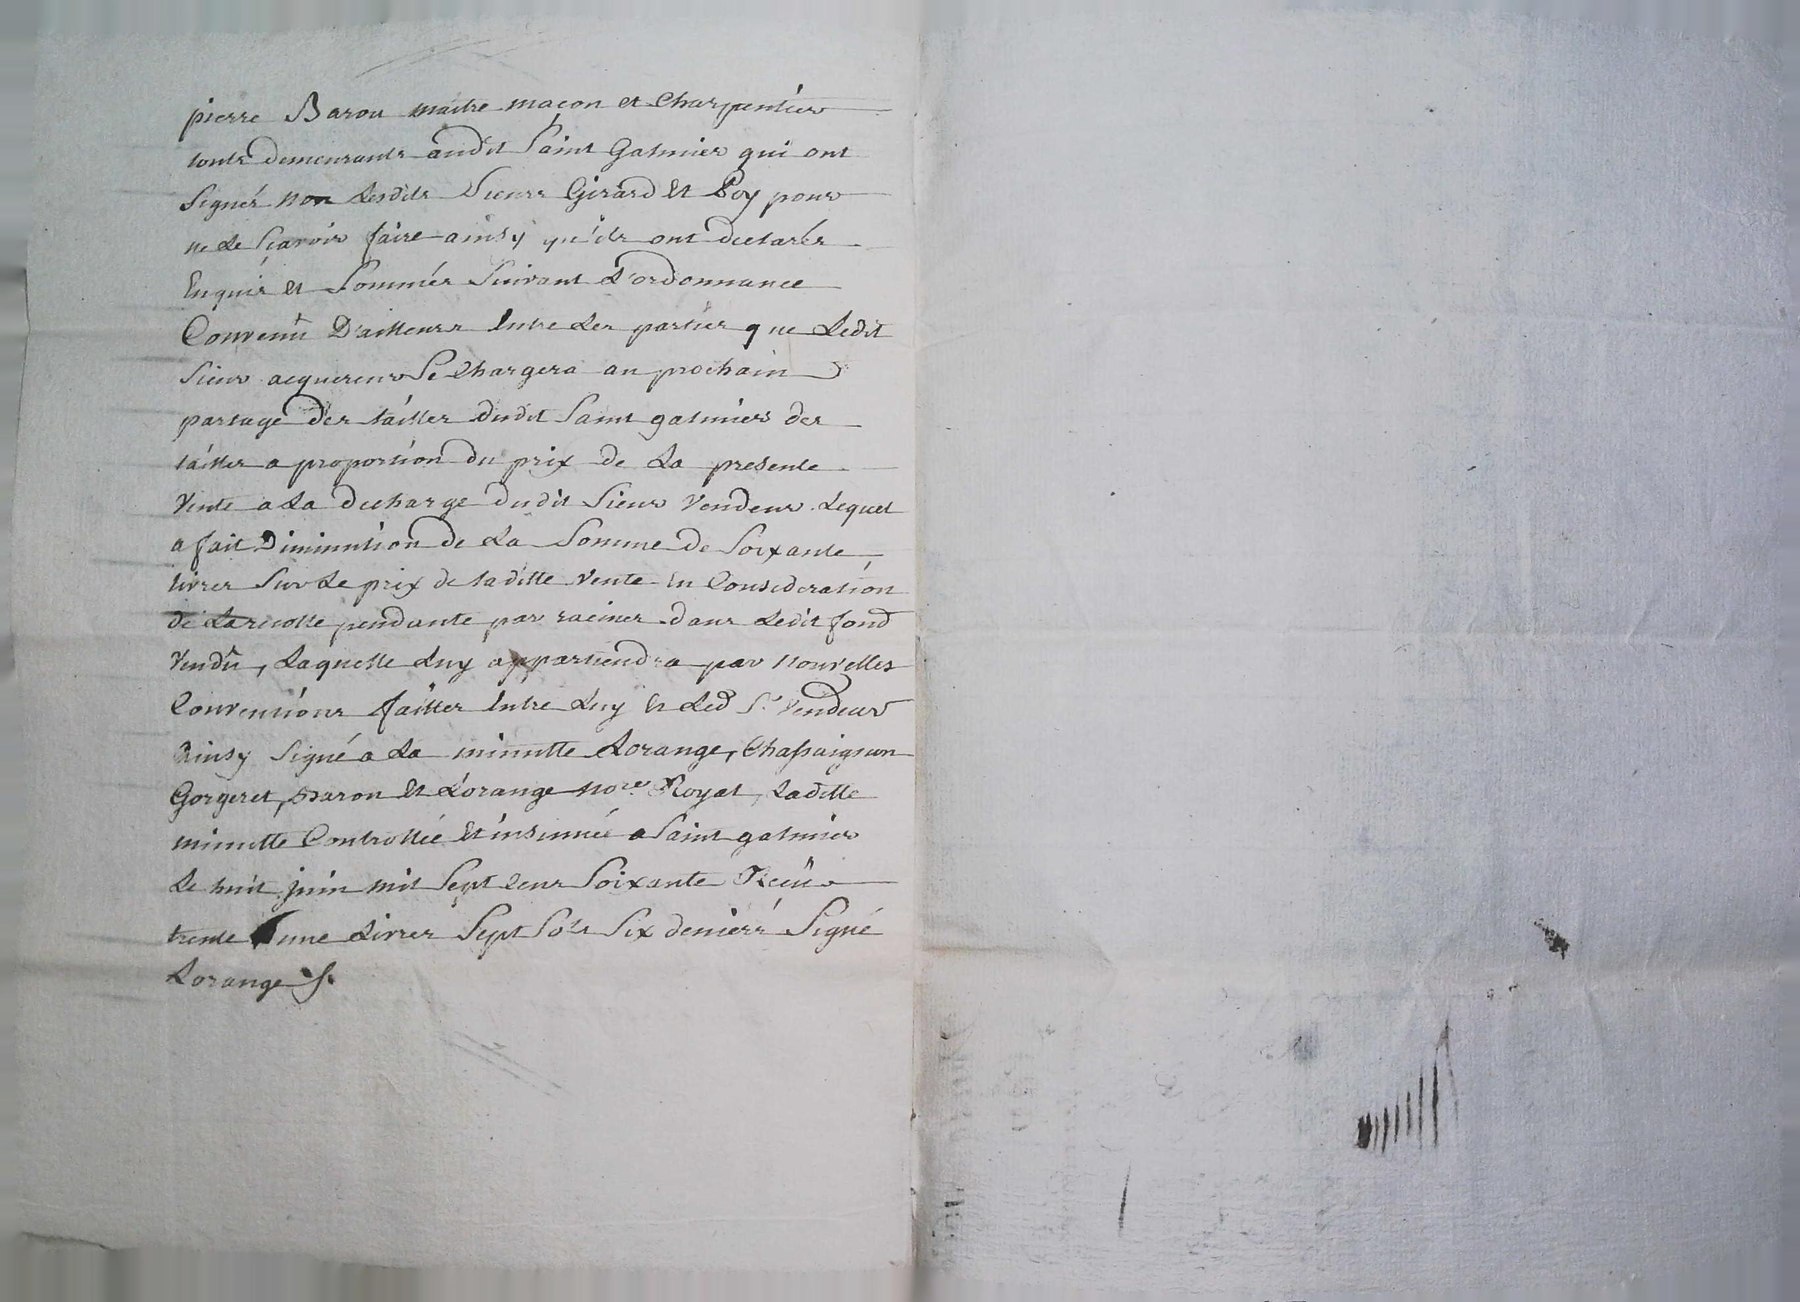 pierre Barou maitre maçon et Charpentier
touts demeurants audit Saint Galmier qui ont
Signés non Lesdits Sieurs Girard Et Poy pour
ne Le Scavoir faire ainsy qu'ils ont declarés
Enquis et Sommés Suivant L'ordonnance
Convenû D'ailleurs Entre Les parties que Ledit
Sieur acquereur Se Chargera au prochain
partage des tailles dudit Saint galmier des
tailles a proportion du prix de La presente
Vente a La decharge dudit Sieur Vendeur Lequel
a fait Diminution de La Somme de Soixante
livres Sur Le prix de laditte Vente En Consideration
de La recolte pendante par racines dans Ledit fond
Vendû, Laquelle Luy appartiendra par nouvelles
Conventions faittes Entre Luy Et Led Sr Vendeur
Ainsy Signé a La minutte Lorange, Chassaignon
Gorgeret, Baron Et Lorange nore Royal, Laditte
minutte Controllée Et insinuée a Saint galmier
Le huit juin mil Sept Cens Soixante Reçû
trente une Livres Sept Sols Six deniers Signé
Lorange